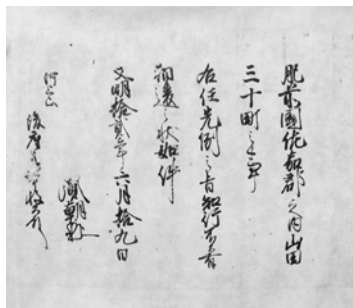 肥前國佐嘉郡之内山田
三十町之事
右任先例之旨知行不可有
相違之状如件
文明拾貳年六月拾九日
河上山